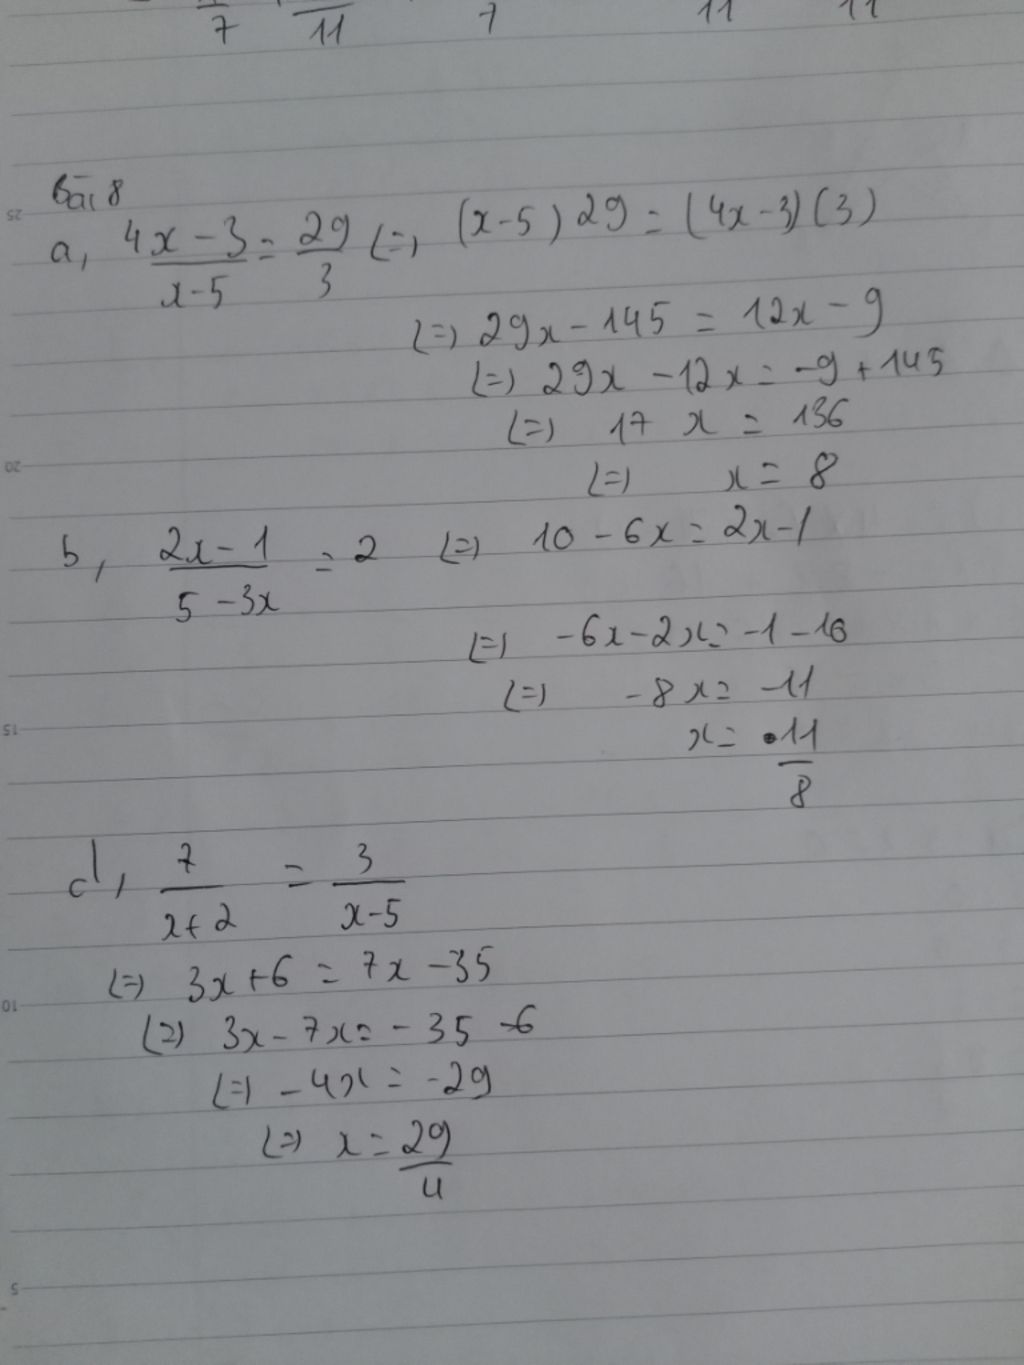 7 11 7 11 11
Bài 8
a, \frac{4x-3}{x-5} = \frac{29}{3} (=) (x-5) 29 = (4x-3)(3)
(=) 29x - 145 = 12x - 9
(=) 29x - 12x = -9 + 145
(=) 17 x = 136
(=) x = 8
b, \frac{2x-1}{5-3x} = 2 (=) 10 - 6x = 2x - 1
(=) -6x - 2x = -1 - 10
(=) -8x = -11
x = \frac{11}{8}
d, \frac{7}{x+2} = \frac{3}{x-5}
(=) 3x + 6 = 7x - 35
(=) 3x - 7x = -35 -6
(=) -4x = -29
(=) x = \frac{29}{4}
25
20
15
10
5